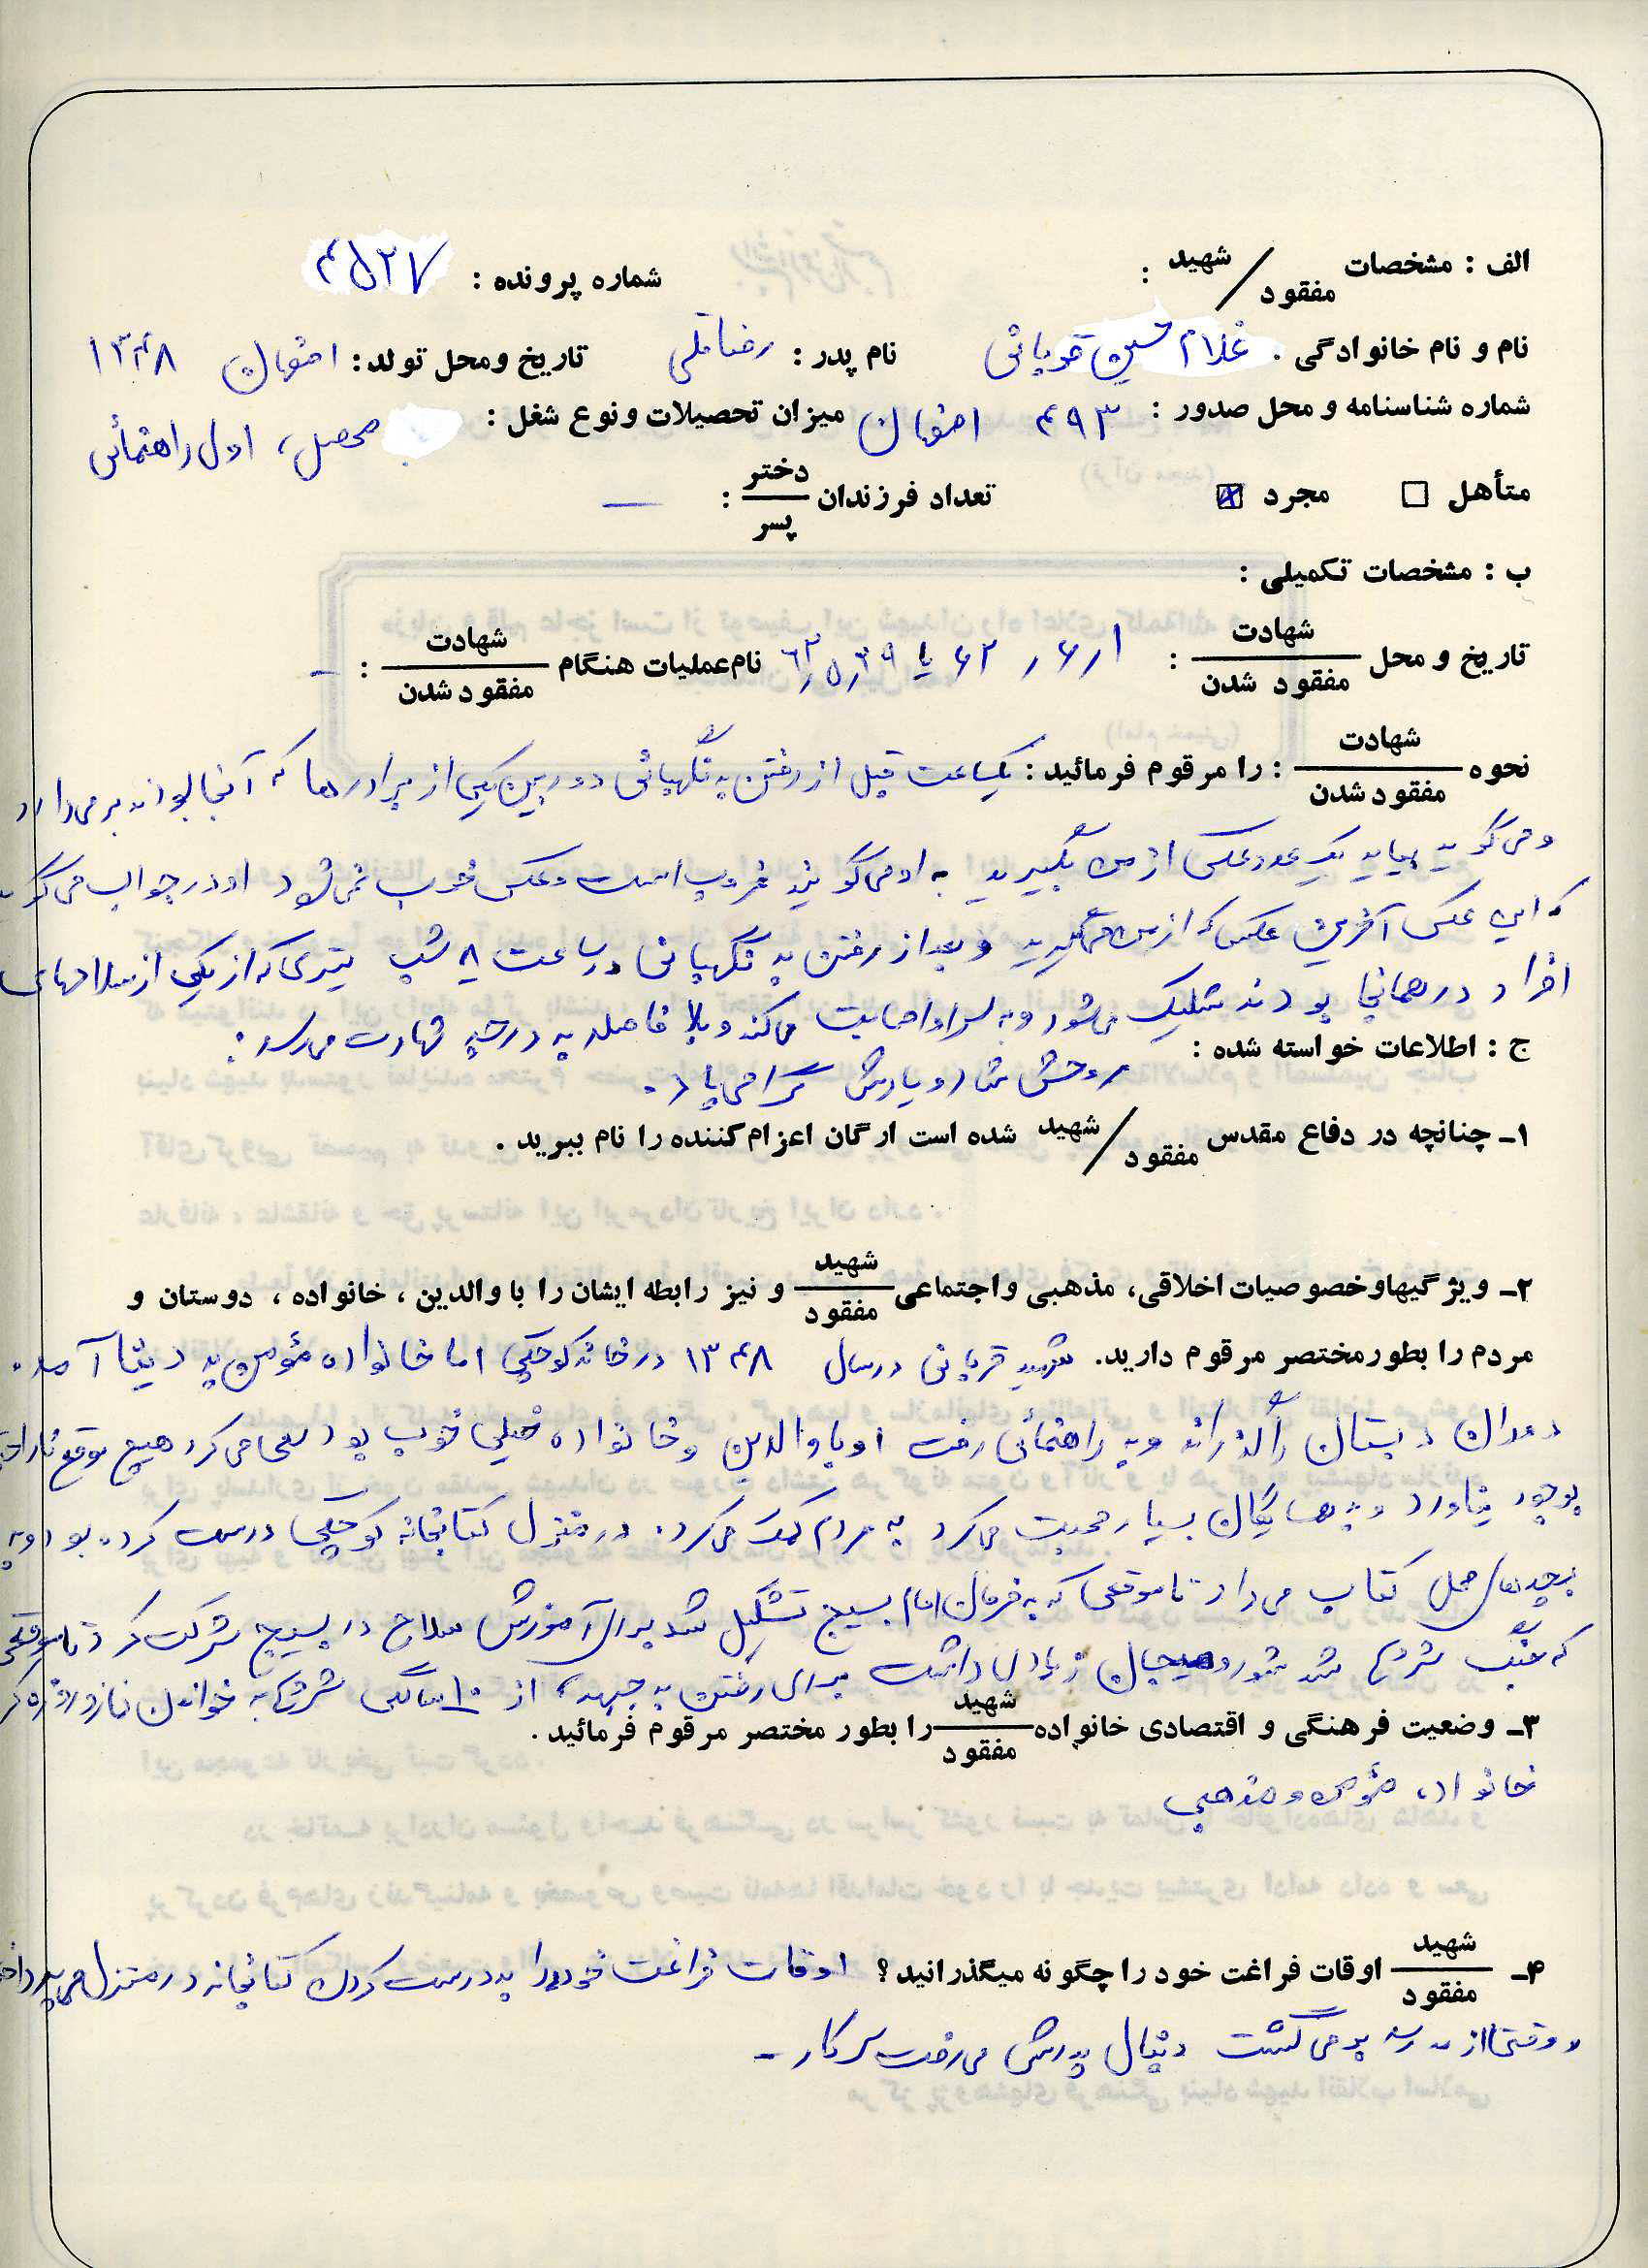 الف : مشخصات شهید / مفقود :
شماره پرونده : ۴۵۲۷
نام و نام خانوادگی : غلامحسین قربانی نام پدر : رضاقلی تاریخ ومحل تولد : اصفهان ۱۳۴۸
شماره شناسنامه و محل صدور : ۴۹۳ اصفهان میزان تحصیلات ونوع شغل : محصل، اول راهنمائی
متأهل □ مجرد ☒ تعداد فرزندان دختر / پسر : —
ب : مشخصات تکمیلی :
تاریخ و محل شهادت / مفقود شدن : ۱ر۶ر۶۲ یا ۲۹ر۵ر۶۲ نام عملیات هنگام شهادت / مفقود شدن : –
نحوه شهادت / مفقود شدن : را مرقوم فرمائید : یکساعت قبل از رفتن به نگهبانی دوربین یکی از برادرها که آنجا بوده بر می‌دارد
و می گوید بیایید یک عدد عکس از من بگیرید به او می گویند غروب است و عکس خوب نمی شود او در جواب می گوید
که این عکس آخرین عکس که از من میگیرید و بعد از رفتن به نگهبانی در ساعت ۸ شب تیری که از یکی از سلاحهای
افراد در همانجا بودند شلیک می شود و به سر او اصابت می کند و بلا فاصله به درجه شهادت می رسد.
ج : اطلاعات خواسته شده :
روحش شاد و یادش گرامی باد.
۱ـ چنانچه در دفاع مقدس شهید / مفقود شده است ارگان اعزام کننده را نام ببرید .
۲ـ ویژگیها و خصوصیات اخلاقی، مذهبی و اجتماعی شهید / مفقود و نیز رابطه ایشان را با والدین ، خانواده ، دوستان و
مردم را بطور مختصر مرقوم دارید. شهید قربانی در سال ۱۳۴۸ در خانه کوچکی اما خانواده مؤمن به دنیا آمد.
دوران دبستان را گذراند و به راهنمائی رفت او با والدین و خانواده خیلی خوب بود سعی می کرد هیچ موقع ناراحتی
بوجود نیاورد و به همسایگان بسیار محبت می کرد به مردم کمک می کرد. در منزل کتابخانه کوچکی درست کرده بود و به
بچه های محل کتاب می داد تا موقعی که به فرمان امام بسیج تشکیل شد برای آموزش سلاح در بسیج شرکت کرد تا موقعی
که جنگ شروع شد شور و هیجان زیادی داشت برای رفتن به جبهه، از ۱۰ سالگی شروع به خواندن نماز و روزه کرد
۳ـ وضعیت فرهنگی و اقتصادی خانواده شهید / مفقود را بطور مختصر مرقوم فرمائید .
خانواده مؤمن و مذهبی
۴ـ شهید / مفقود اوقات فراغت خود را چگونه میگذرانید ؟ اوقات فراغت خود را به درست کردن کتابخانه در منزل می پرداخت
و وقتی از مدرسه بر می گشت دنبال پدرش می رفت سر کار –